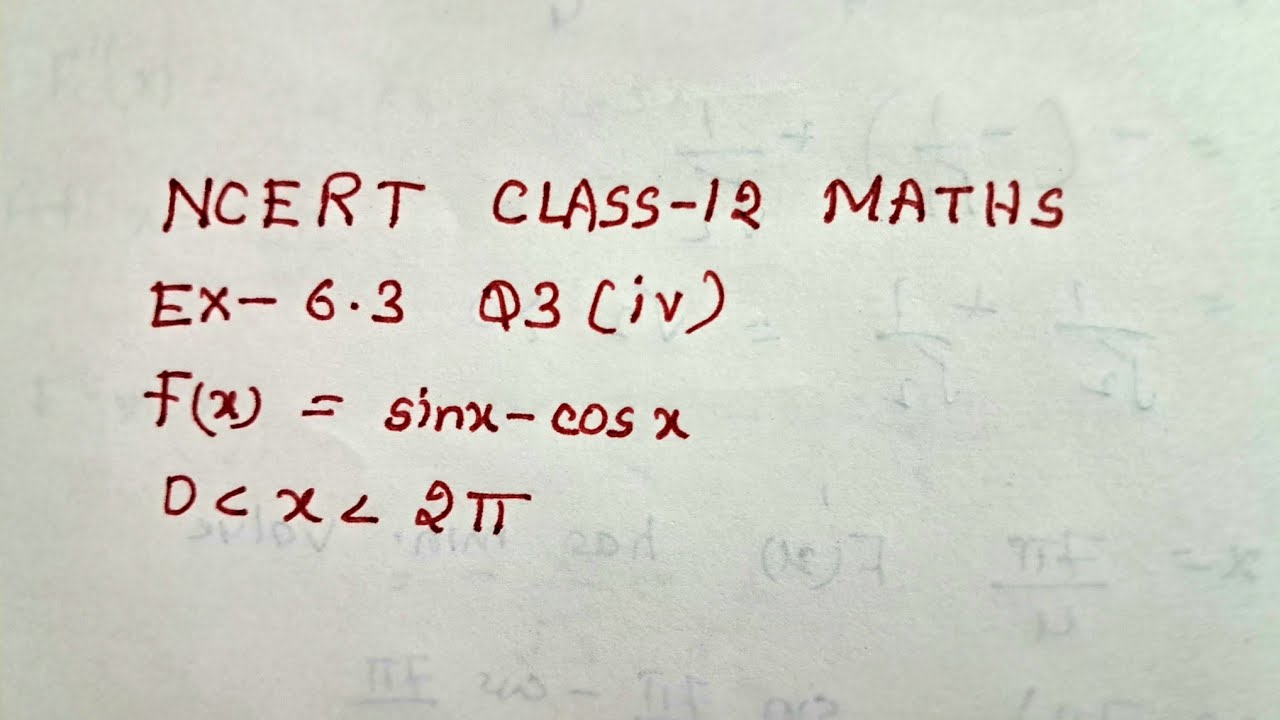 NCERT CLASS-12 MATHS
EX- 6.3 Q3 (iv)
F(x) = sinx - cos x
0 < x < 2π